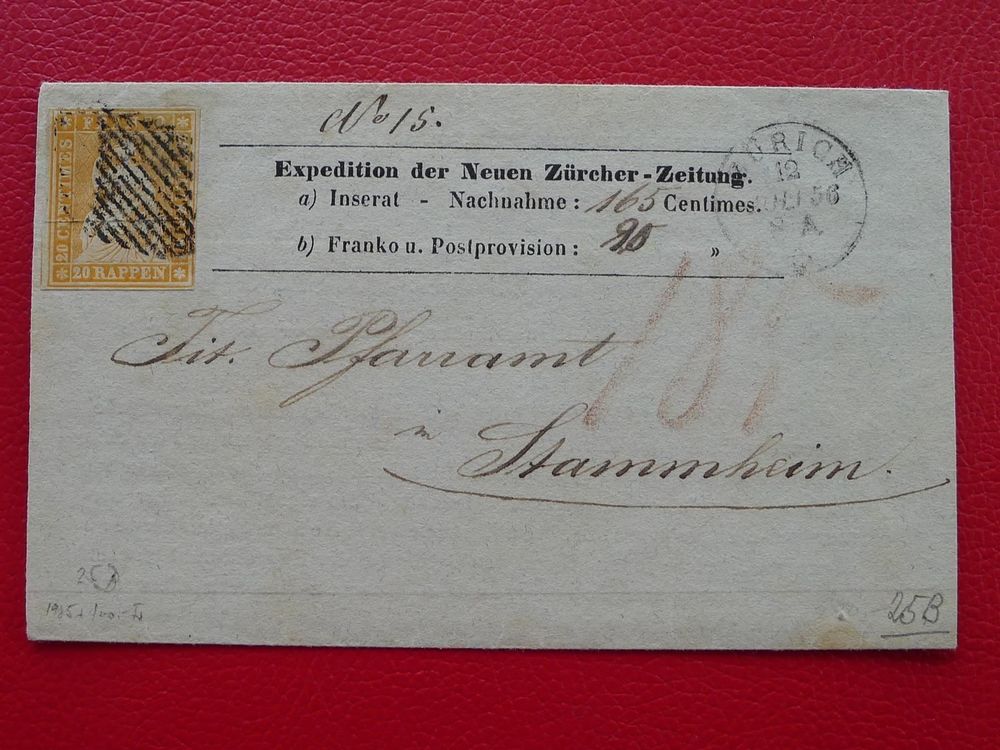 No 15.
FRANCO
20 CENTIMES
20 RAPPEN
Expedition der Neuen Zürcher-Zeitung.
a) Inserat - Nachnahme: 165 Centimes.
b) Franko u. Postprovision: 20 "
ZÜRICH
12
JULI 56
185
Tit. Pfarramt
in
Stammheim.
25B